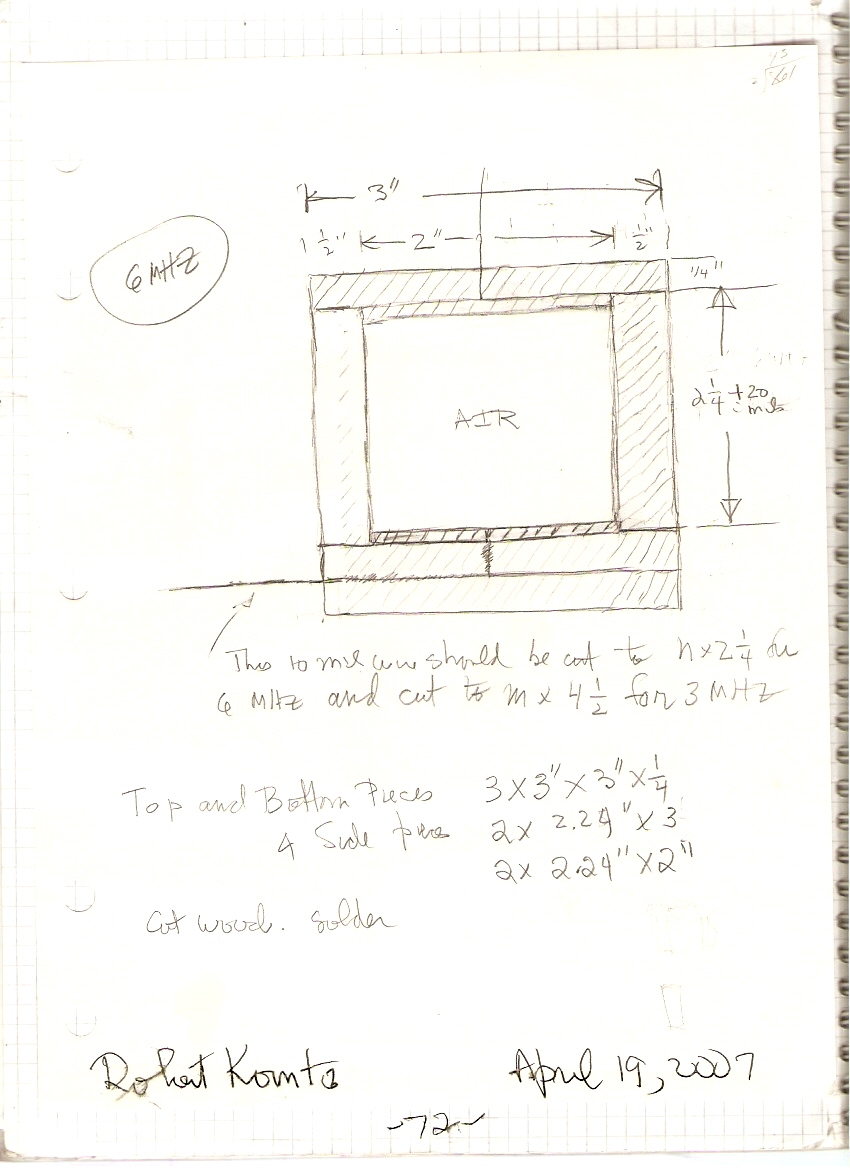 3"
1 1/2" 2" 1/2"
6 MHZ
1/4"
2 1/4 + 20
mils
AIR
This 10 mil wire should be cut to n x 2 1/4 for
6 MHz and cut to m x 4 1/2 for 3 MHZ
Top and Bottom Pieces 3 X 3" X 3" X 1/4
4 Side pieces 2 x 2.24" x 3
2x 2.24" X 2"
Cut wood. Solder
Robert April 19, 2007
-72-